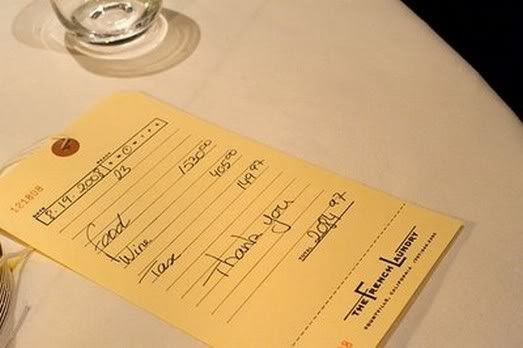 121808
DATE 8.19.2008 23
Food 1530 00
Wine 405 00
Tax 149 97
Thank you
TOTAL 2084 97
THE FRENCH LAUNDRY
YOUNTVILLE, CALIFORNIA
8